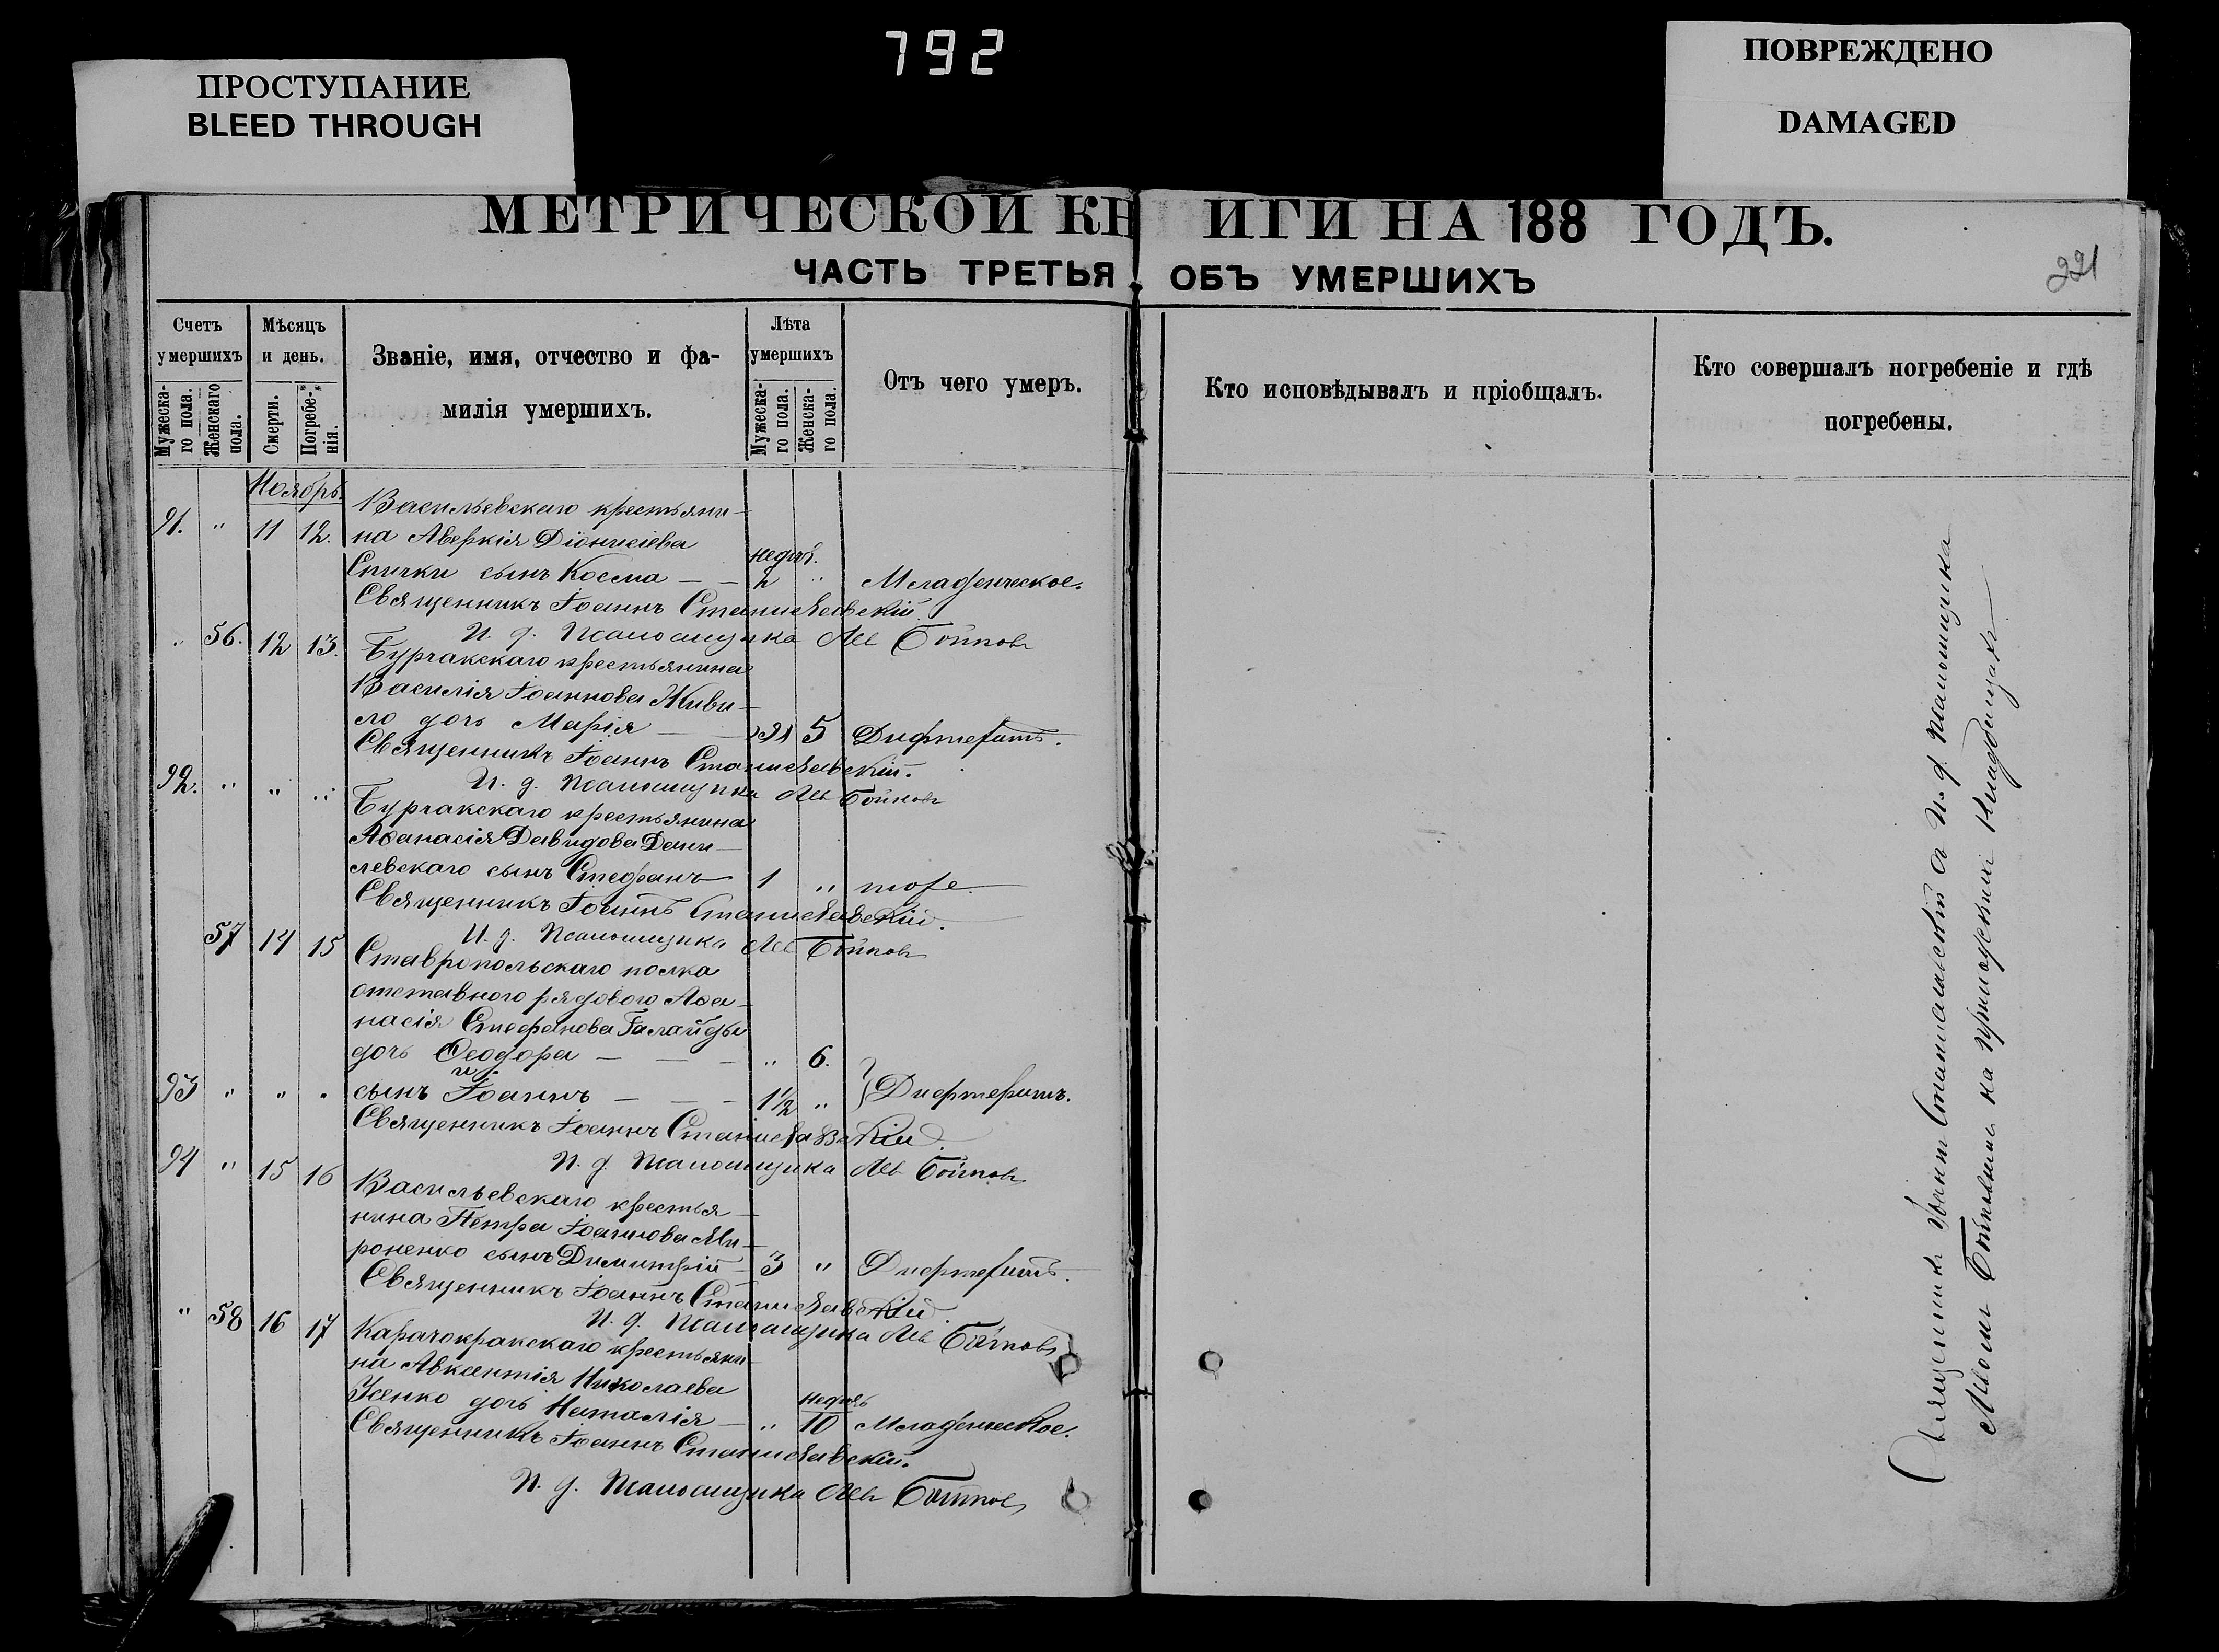 792
ПРОСТУПАНИЕ
BLEED THROUGH
ПОВРЕЖДЕНО
DAMAGED
МЕТРИЧЕСКОЙ КНИГИ НА 188 ГОДЪ.
ЧАСТЬ ТРЕТЬЯ, ОБЪ УМЕРШИХЪ
221
Счетъ умершихъ
Мужеска-го пола.
Женскаго пола.
Мѣсяцъ и день.
Смерти.
Погребе-нія.
Званіе, имя, отчество и фа-
милія умершихъ.
Лѣта умершихъ
Мужеска-го пола.
Женска-го пола.
Отъ чего умеръ.
Кто исповѣдывалъ и пріобщалъ.
Кто совершалъ погребеніе и гдѣ
погребены.
Ноябрь
Васильевскаго крестьяни-
91. " 11 12. на Аверкія Діонисіева
недѣл.
Спички сынъ Косма — — 2 " Младенческое.
Священникъ Іоаннъ Станиславскій
И. д. Псаломщика Левъ Бойковъ
" 56. 12 13. Бурчакскаго крестьянина
Василія Іоаннова Живи-
ло дочь Марія — — 5 Дифтеритъ.
Священникъ Іоаннъ Станиславскій.
И. д. Псаломщика Левъ Бойковъ
92. " " " Бурчакскаго крестьянина
Аѳанасія Давидова Дани-
левскаго сынъ Стефанъ 1 " тоже
Священникъ Іоаннъ Станиславскій.
И. д. Псаломщика Левъ Бойковъ
57 14 15 Ставропольскаго полка
отставного рядового Аѳа-
насія Стефанова Галайды
дочь Ѳеодора — — — " 6.
и
93 " " " сынъ Іоаннъ — — — 1½ " } Дифтеритъ.
Священникъ Іоаннъ Станиславскій.
И. д. Псаломщика Левъ Бойковъ
94 " 15 16 Васильевскаго крестья-
нина Петра Іоаннова Ми-
роненко сынъ Димитрій — 3 " Дифтеритъ.
Священникъ Іоаннъ Станиславскій.
И. д. Псаломщика Левъ Бойковъ
" 58 16 17 Карачокракскаго крестьяни-
на Авксентія Николаева
недѣль
Усенко дочь Наталія — " 10 Младенческое.
Священникъ Іоаннъ Станиславскій.
И. д. Псаломщика Левъ Бойковъ
Священникъ Іоаннъ Станиславскій съ И. д. Псаломщика
Львомъ Бойковымъ на приходскихъ кладбищахъ